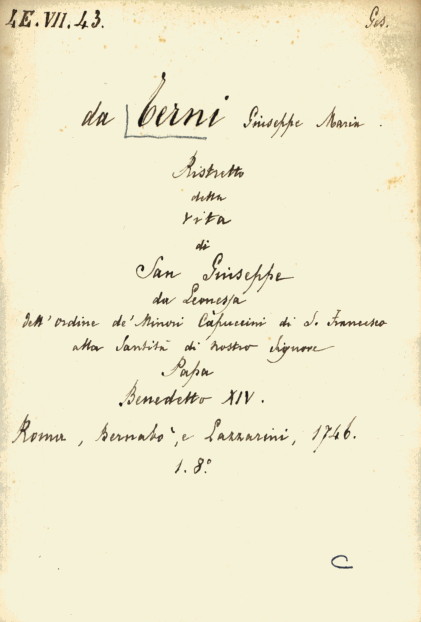 4E.VII.43.
Ges.
da Terni Giuseppe Maria.
Ristretto
della
vita
di
San Giuseppe
da Leonessa
dell'ordine de' Minori Capuccini di S. Francesco
alla Santità di nostro Signore
Papa
Benedetto XIV.
Roma, Bernabò, e Lazzarini, 1746.
1. 8.°
C